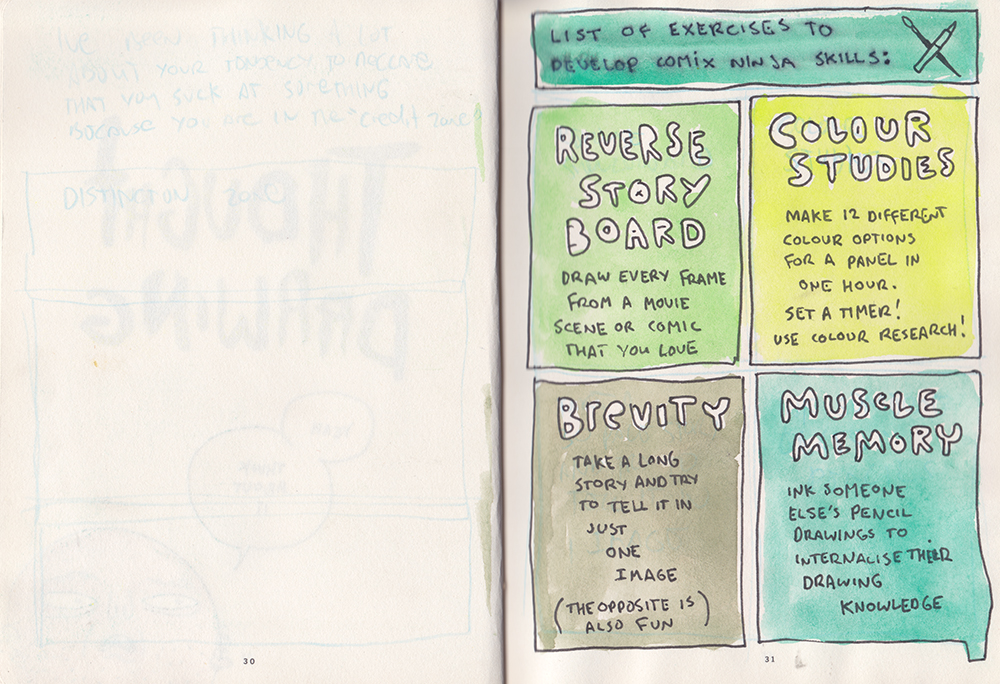 I'VE BEEN THINKING A LOT
ABOUT YOUR TENDENCY TO
THAT YOU SUCK AT SOMETHING
BECAUSE YOU ARE IN THE "CREDIT ZONE"
DISTINCTION ZONE
THOUGHT
DRAWING
30
LIST OF EXERCISES TO
DEVELOP COMIX NINJA SKILLS:
REVERSE
STORY
BOARD
DRAW EVERY FRAME
FROM A MOVIE
SCENE OR COMIC
THAT YOU LOVE
COLOUR
STUDIES
MAKE 12 DIFFERENT
COLOUR OPTIONS
FOR A PANEL IN
ONE HOUR.
SET A TIMER!
USE COLOUR RESEARCH!
BREVITY
TAKE A LONG
STORY AND TRY
TO TELL IT IN
JUST
ONE
IMAGE
(THE OPPOSITE IS
ALSO FUN)
MUSCLE
MEMORY
INK SOMEONE
ELSE'S PENCIL
DRAWINGS TO
INTERNALISE THEIR
DRAWING
KNOWLEDGE
31